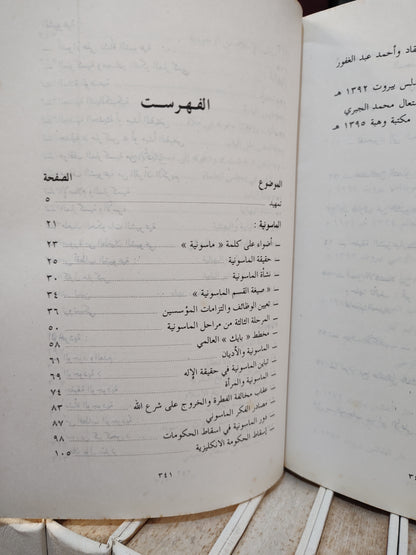 وأحمد عبد الغفور
بيروت ١٣٩٢ هـ
محمد الجبري
مكتبة وهبة ١٣٩٥ هـ
الفهرست
الموضوع الصفحة
تمهيد ٥
الماسونية : ٢١
– أضواء على كلمة « ماسونية » ٢٣
– حقيقة الماسونية ٢٥
– نشأة الماسونية ٣٠
– « صيغة القسم الماسونية » ٣٤
– تعيين الوظائف والتزامات المؤسسين ٣٦
– المرحلة الثالثة من مراحل الماسونية ٥٠
– مخطط « بايك » العالمي ٥٨
– الماسونية والأديان ٦١
– تباين الماسونية في حقيقة الإله ٦٩
– الماسونية والمرأة ٧٤
– عقاب مخالفة الفطرة والخروج على شرع الله ٨٣
– مصادر الفكر الماسوني ٨٧
– دور الماسونية في اسقاط الحكومات ٩٨
– إسقاط الحكومة الانكليزية ١٠٥
٣٤١